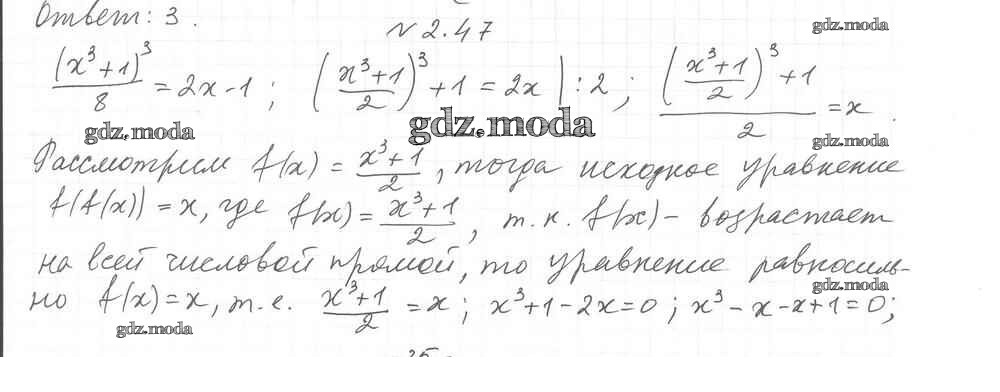 Ответ: 3.
N 2.47
gdz.moda
(x³+1)³/8 = 2x-1; ((x³+1)/2)³ + 1 = 2x | :2; (((x³+1)/2)³ + 1)/2 = x.
gdz.moda gdz.moda gdz.moda
Рассмотрим f(x) = (x³+1)/2, тогда исходное уравнение
f(f(x)) = x, где f(x) = (x³+1)/2, т.к. f(x) - возрастает
на всей числовой прямой, то уравнение равносиль-
gdz.moda
но f(x) = x, т.е. (x³+1)/2 = x; x³+1-2x=0; x³-x-x+1=0;
gdz.moda gdz.moda